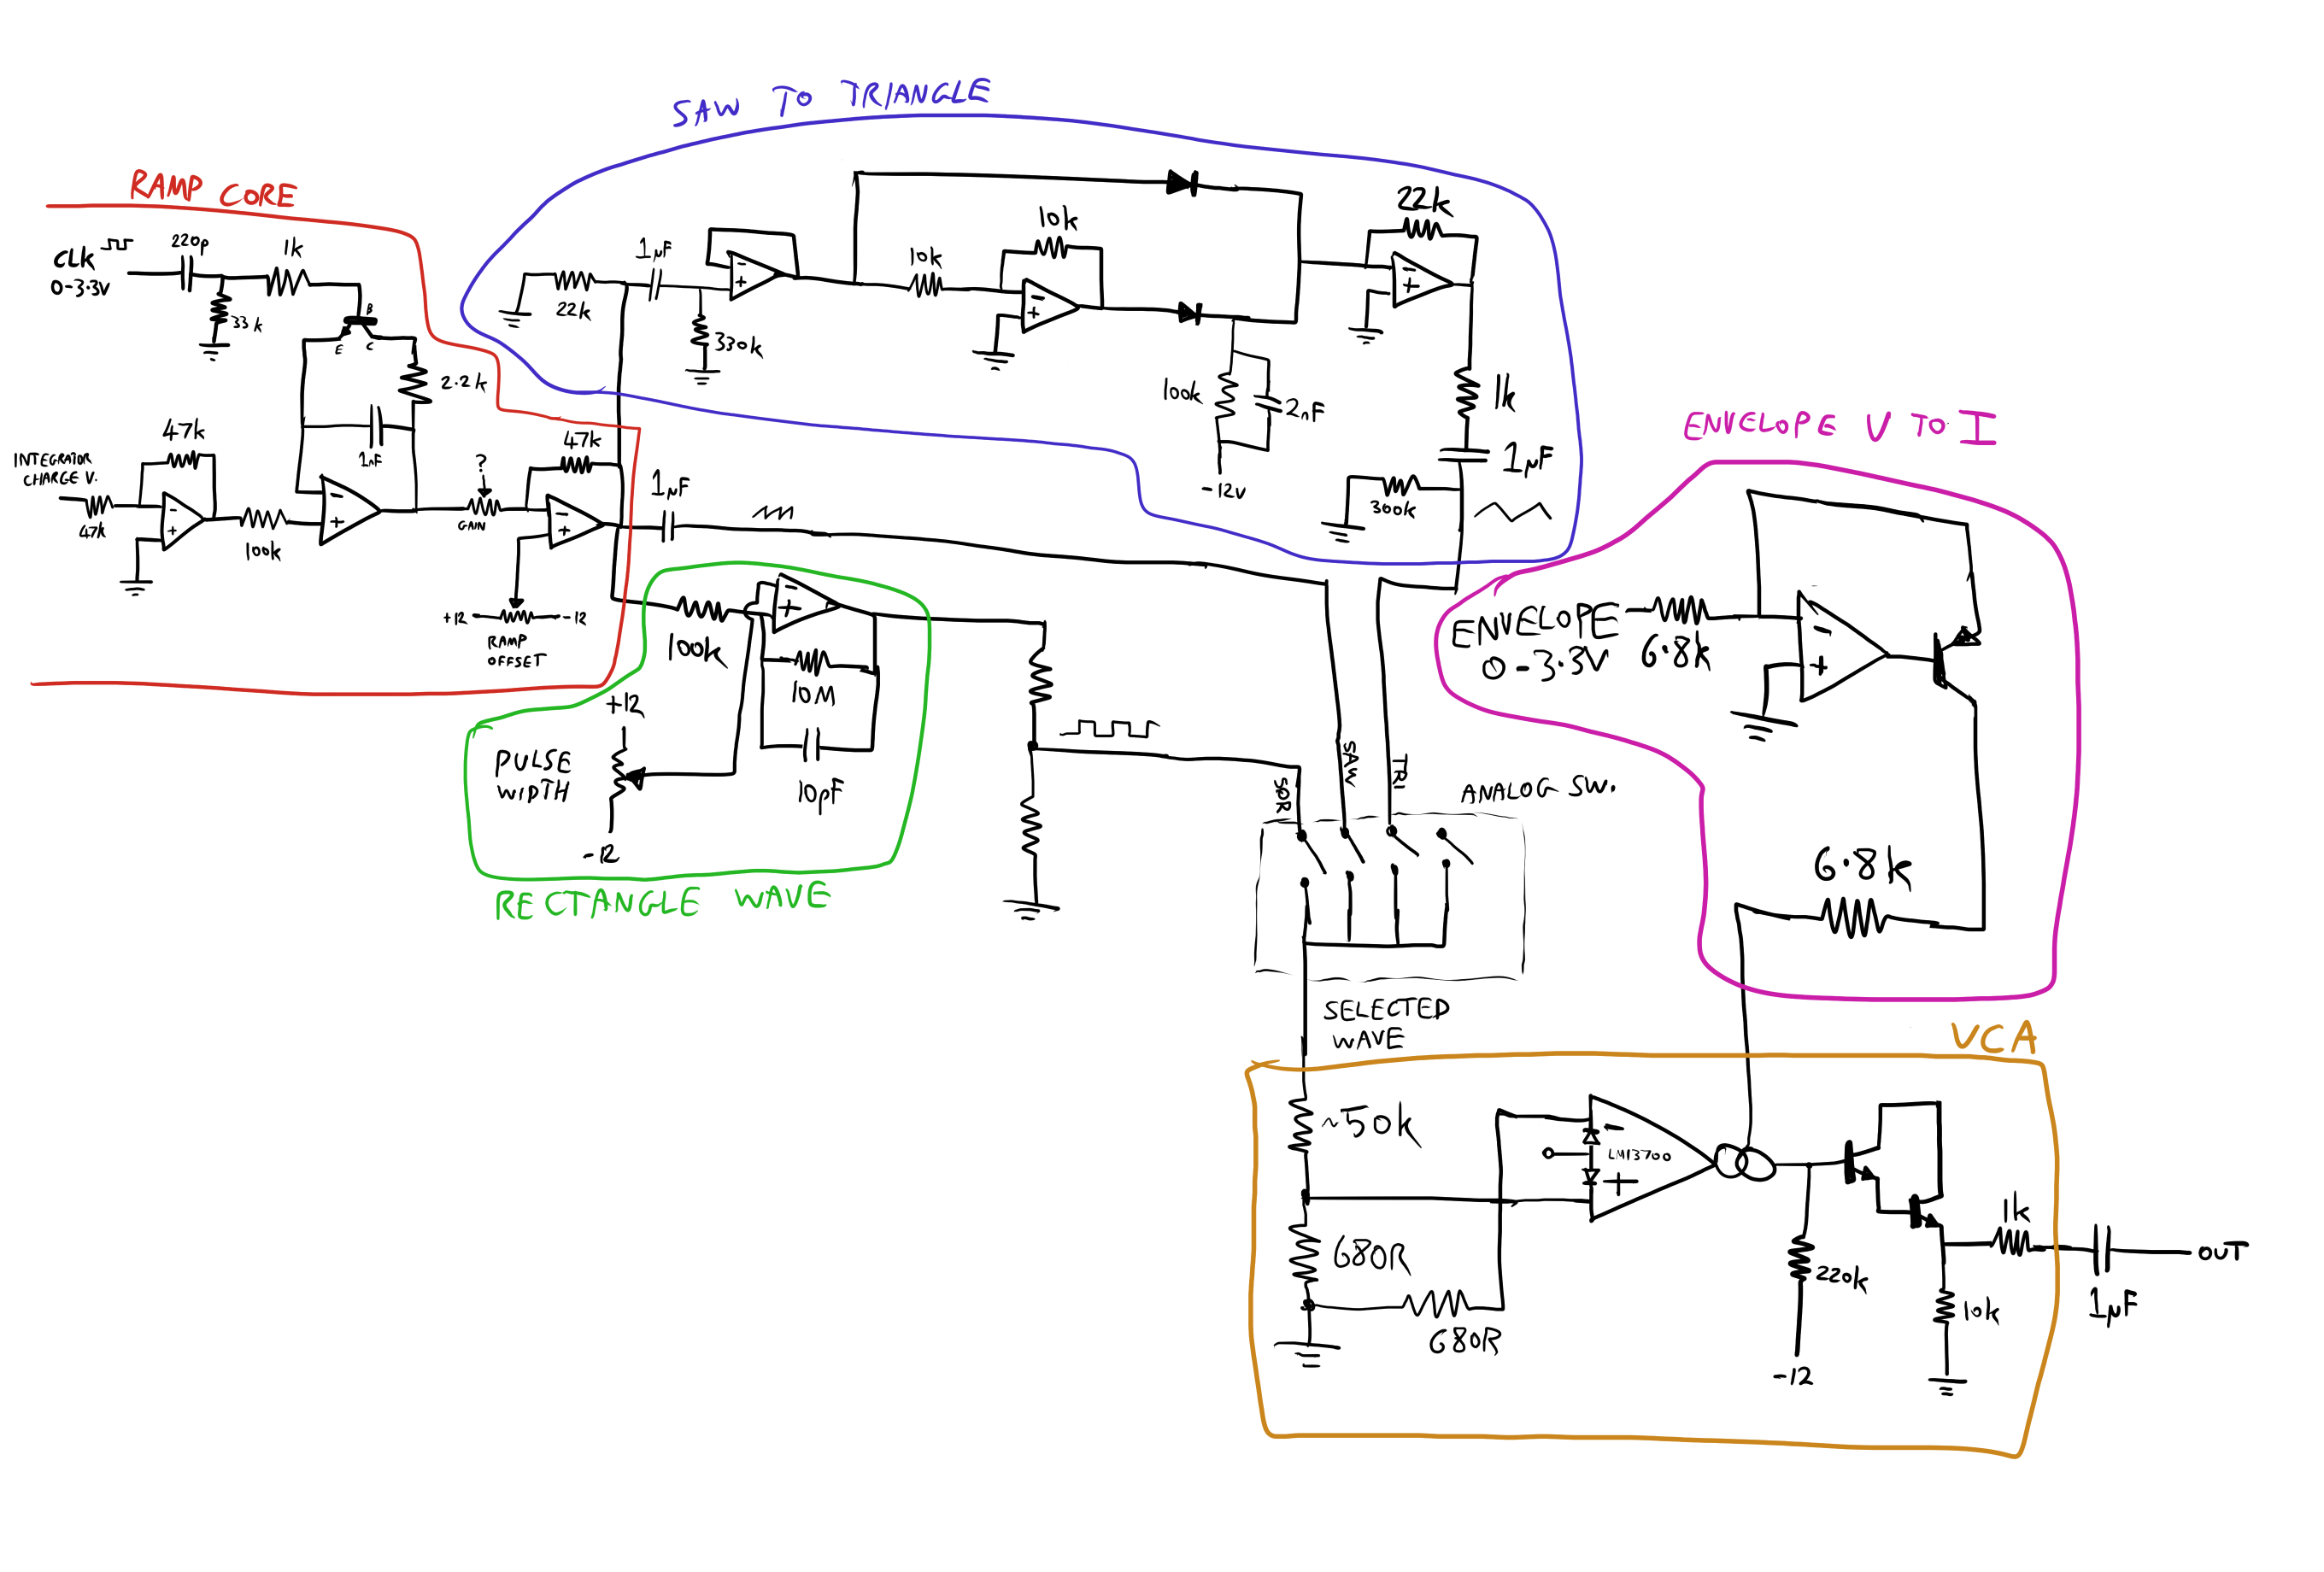 SAW TO TRIANGLE
RAMP CORE
CLK
0-3.3V
220p
1k
33k
B
E
C
2.2k
1nF
INTEGRATOR
CHARGE V.
47k
47k
-
+
100k
-
+
?
GAIN
47k
-
+
+12
-12
RAMP
OFFSET
1µF
22k
1µF
330k
-
+
10k
10k
-
+
100k
2nF
-12V
22k
-
+
1k
1µF
300k
ENVELOPE V TO I
ENVELOPE
0-3.3V
6.8k
-
+
6.8k
100k
-
+
10M
10pF
+12
PULSE
WIDTH
-12
RECTANGLE WAVE
SQR
SAW
TRI
ANALOG SW.
SELECTED
WAVE
VCA
~50k
680R
680R
-
LM13700
+
220k
-12
1k
10k
1µF
OUT